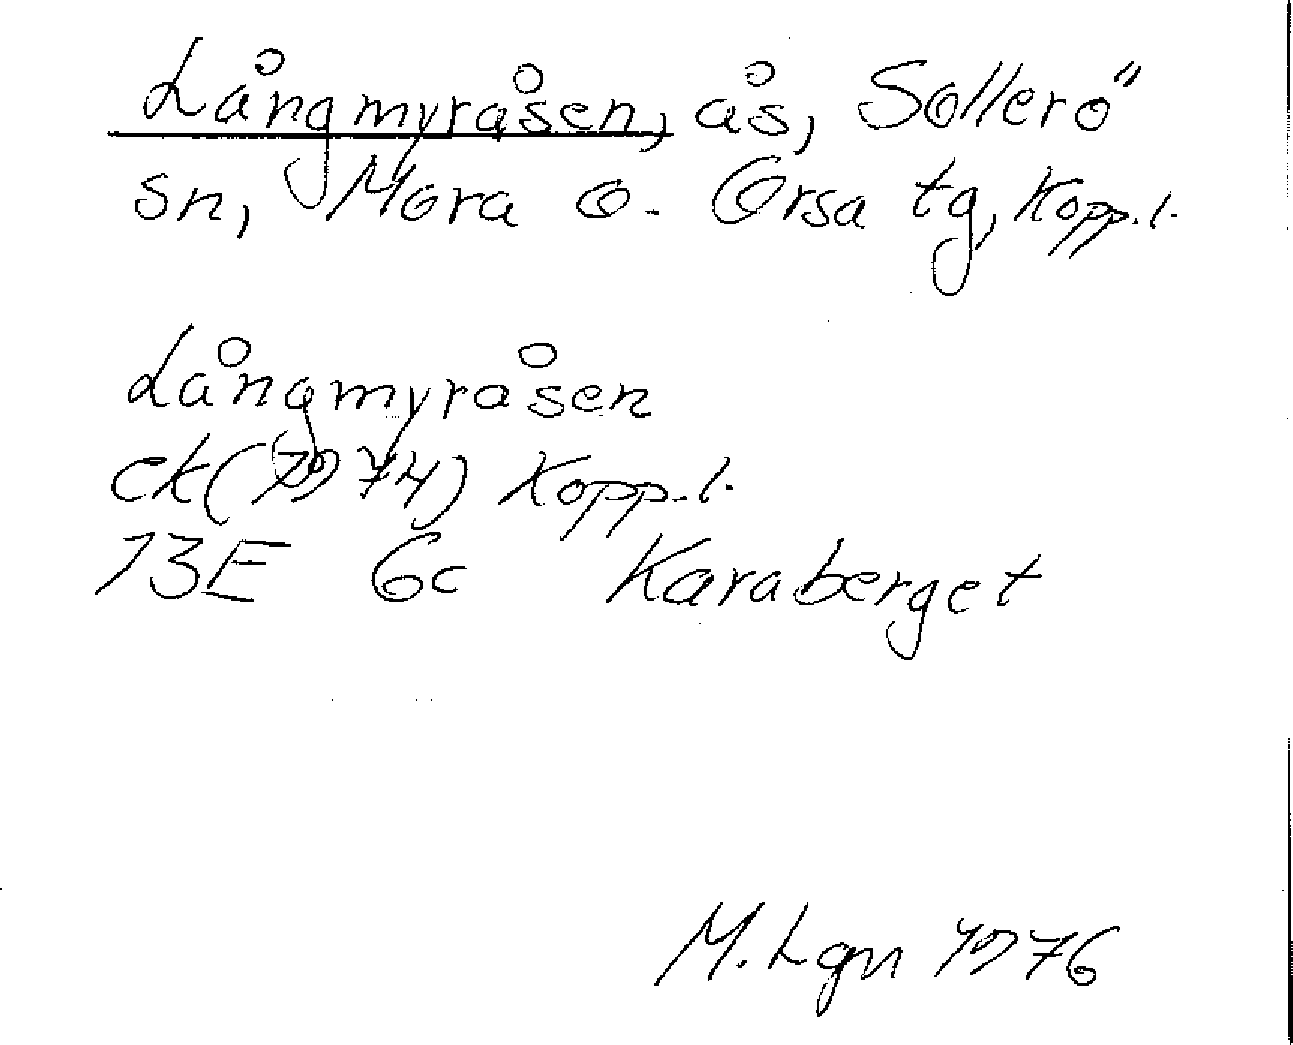 Långmyråsen, ås, Sollerö
sn, Mora o. Orsa tg, Kopp.l.
Långmyråsen
ek(1974) Kopp.l.
13E 6c Karaberget
M.Lgn 1976